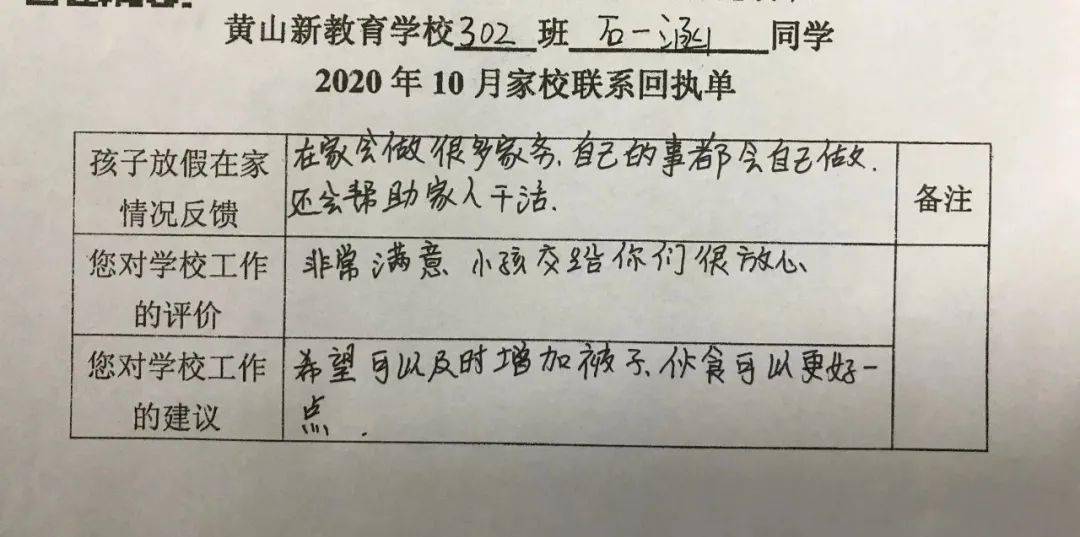 黄山新教育学校302班 石一涵 同学
2020年10月家校联系回执单
孩子放假在家
情况反馈
在家会做很多家务、自己的事都会自己做.
还会帮助家人干活.
备注
您对学校工作
的评价
非常满意、小孩交给你们很放心、
您对学校工作
的建议
希望可以及时增加被子、伙食可以更好一
点.